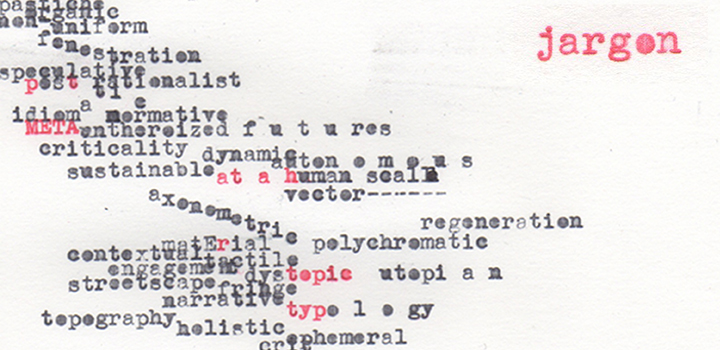 pastiche
organic
non uniform
jargon
fenestration
speculative
post rationalist
idiom normative
META
f u t u res
criticality dynamic
auton o m o u s
sustainable at a human scale
vector------
axonometric
regeneration
matErial polychromatic
contextual tactile
engagement dystopic utopi a n
streetscape fringe
narrative
typo l o gy
topography holistic
ephemeral
crit